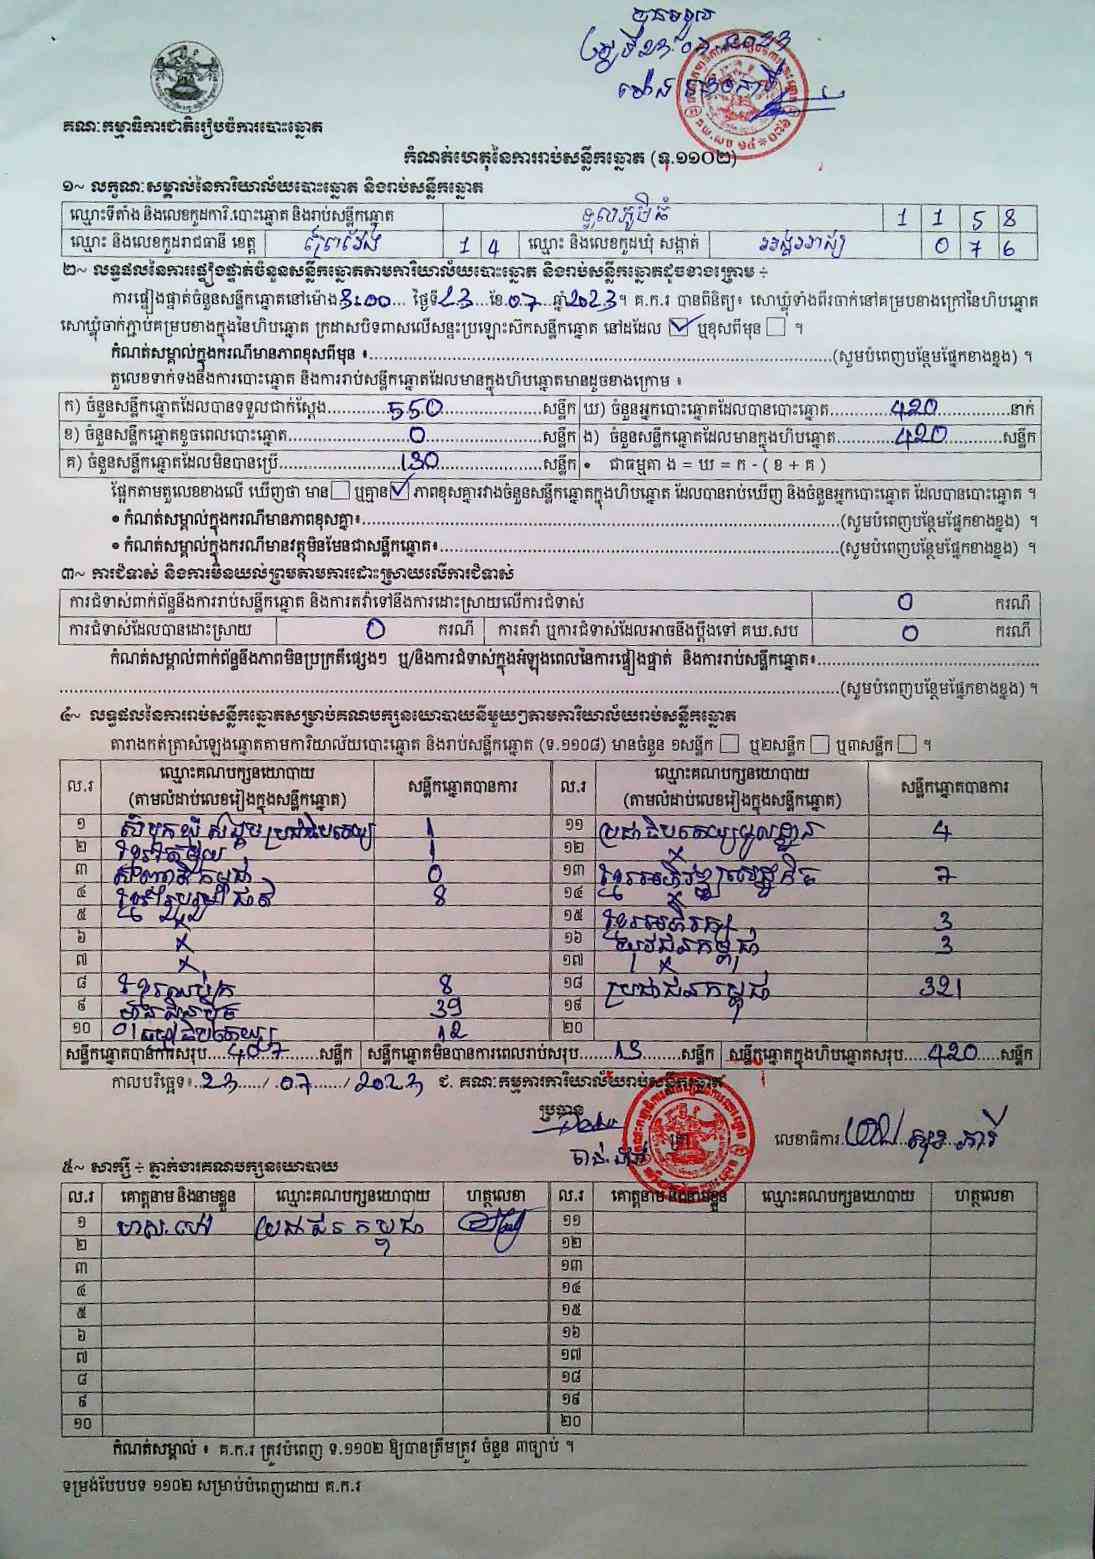 គណៈកម្មាធិការជាតិរៀបចំការបោះឆ្នោត
កំណត់ហេតុនៃការរាប់សន្លឹកឆ្នោត (ទ.១១០២)
១~ លក្ខណៈសម្គាល់នៃការិយាល័យបោះឆ្នោត និងរាប់សន្លឹកឆ្នោត
ឈ្មោះទីតាំង និងលេខកូដការិ.បោះឆ្នោត និងរាប់សន្លឹកឆ្នោត ទួលភូមិធំ 1 1 5 8
ឈ្មោះ និងលេខកូដរាជធានី ខេត្ត ព្រៃវែង 1 4 ឈ្មោះ និងលេខកូដឃុំ សង្កាត់ 0 7 6
២~ លទ្ធផលនៃការផ្ទៀងផ្ទាត់ចំនួនសន្លឹកឆ្នោតតាមការិយាល័យបោះឆ្នោត និងរាប់សន្លឹកឆ្នោតដូចខាងក្រោម ÷
ការផ្ទៀងផ្ទាត់ចំនួនសន្លឹកឆ្នោតនៅម៉ោង 3:00 ថ្ងៃទី 23 ខែ 07 ឆ្នាំ 2023 ។ គ.ក.រ បានពិនិត្យ៖ សោឃ្លុំទាំងពីរចាក់នៅគម្របខាងក្រៅនៃហិបឆ្នោត
សោឃ្លុំចាក់ភ្ជាប់គម្របខាងក្នុងនៃហិបឆ្នោត ក្រដាសបិទពាសលើសន្ទះប្រឡោះស៊កសន្លឹកឆ្នោត នៅដដែល ☑ ឬខុសពីមុន ☐ ។
កំណត់សម្គាល់ក្នុងករណីមានភាពខុសពីមុន ៖ (សូមបំពេញបន្ថែមផ្នែកខាងខ្នង) ។
តួលេខទាក់ទងនឹងការបោះឆ្នោត និងការរាប់សន្លឹកឆ្នោតដែលមានក្នុងហិបឆ្នោតមានដូចខាងក្រោម ៖
ក) ចំនួនសន្លឹកឆ្នោតដែលបានទទួលជាក់ស្តែង 550 សន្លឹក ឃ) ចំនួនអ្នកបោះឆ្នោតដែលបានបោះឆ្នោត 420 នាក់
ខ) ចំនួនសន្លឹកឆ្នោតខូចពេលបោះឆ្នោត 0 សន្លឹក ង) ចំនួនសន្លឹកឆ្នោតដែលមានក្នុងហិបឆ្នោត 420 សន្លឹក
គ) ចំនួនសន្លឹកឆ្នោតដែលមិនបានប្រើ 130 សន្លឹក • ជាធម្មតា ង = ឃ = ក - ( ខ + គ )
ផ្អែកតាមតួលេខខាងលើ ឃើញថា មាន ☐ ឬគ្មាន ☑ ភាពខុសគ្នារវាងចំនួនសន្លឹកឆ្នោតក្នុងហិបឆ្នោត ដែលបានរាប់ឃើញ និងចំនួនអ្នកបោះឆ្នោត ដែលបានបោះឆ្នោត ។
• កំណត់សម្គាល់ក្នុងករណីមានភាពខុសគ្នា៖ (សូមបំពេញបន្ថែមផ្នែកខាងខ្នង) ។
• កំណត់សម្គាល់ក្នុងករណីមានវត្ថុមិនមែនជាសន្លឹកឆ្នោត៖ (សូមបំពេញបន្ថែមផ្នែកខាងខ្នង) ។
៣~ ការជំទាស់ និងការមិនយល់ព្រមតាមការដោះស្រាយលើការជំទាស់
ការជំទាស់ពាក់ព័ន្ធនឹងការរាប់សន្លឹកឆ្នោត និងការតវ៉ាទៅនឹងការដោះស្រាយលើការជំទាស់ 0 ករណី
ការជំទាស់ដែលបានដោះស្រាយ 0 ករណី ការតវ៉ា ឬការជំទាស់ដែលអាចនឹងប្តឹងទៅ គឃ.សប 0 ករណី
កំណត់សម្គាល់ពាក់ព័ន្ធនឹងភាពមិនប្រក្រតីផ្សេងៗ ឬ/និងការជំទាស់ក្នុងអំឡុងពេលនៃការផ្ទៀងផ្ទាត់ និងការរាប់សន្លឹកឆ្នោត៖
(សូមបំពេញបន្ថែមផ្នែកខាងខ្នង) ។
៤~ លទ្ធផលនៃការរាប់សន្លឹកឆ្នោតសម្រាប់គណបក្សនយោបាយនីមួយៗតាមការិយាល័យរាប់សន្លឹកឆ្នោត
តារាងកត់ត្រាសំឡេងឆ្នោតតាមការិយាល័យបោះឆ្នោត និងរាប់សន្លឹកឆ្នោត (ទ.១១០៨) មានចំនួន ១សន្លឹក ☐ ឬ២សន្លឹក ☐ ឬ៣សន្លឹក ☐ ។
ល.រ ឈ្មោះគណបក្សនយោបាយ (តាមលំដាប់លេខរៀងក្នុងសន្លឹកឆ្នោត) សន្លឹកឆ្នោតបានការ ល.រ ឈ្មោះគណបក្សនយោបាយ (តាមលំដាប់លេខរៀងក្នុងសន្លឹកឆ្នោត) សន្លឹកឆ្នោតបានការ
១ សំបុកឃ្មុំសង្គមប្រជាធិបតេយ្យ 1 ១១ ប្រជាធិបតេយ្យមូលដ្ឋាន 4
២ ខ្មែរតែមួយ 1 ១២ x
៣ សញ្ជាតិកម្ពុជា 0 ១៣ ខ្មែរអភិវឌ្ឍសេដ្ឋកិច្ច 7
៤ ខ្មែររួបរួមជាតិ 8 ១៤ x
៥ x ១៥ ខ្មែរអភិរក្ស 3
៦ x ១៦ យុវជនកម្ពុជា 3
៧ x ១៧ x
៨ 8 ១៨ ប្រជាជនកម្ពុជា 321
៩ ហ្វ៊ុនស៊ិនប៉ិច 39 ១៩
១០ ធម្មាធិបតេយ្យ 12 ២០
សន្លឹកឆ្នោតបានការសរុប 407 សន្លឹក សន្លឹកឆ្នោតមិនបានការពេលរាប់សរុប 13 សន្លឹក សន្លឹកឆ្នោតក្នុងហិបឆ្នោតសរុប 420 សន្លឹក
កាលបរិច្ឆេទ៖ 23 / 07 / 2023 ជ. គណៈកម្មការការិយាល័យរាប់សន្លឹកឆ្នោត
ប្រធាន
លេខាធិការ
៥~ សាក្សី ÷ ភ្នាក់ងារគណបក្សនយោបាយ
ល.រ គោត្តនាម និងនាមខ្លួន ឈ្មោះគណបក្សនយោបាយ ហត្ថលេខា ល.រ គោត្តនាម និងនាមខ្លួន ឈ្មោះគណបក្សនយោបាយ ហត្ថលេខា
១ ប្រជាជនកម្ពុជា ១១
២ ១២
៣ ១៣
៤ ១៤
៥ ១៥
៦ ១៦
៧ ១៧
៨ ១៨
៩ ១៩
១០ ២០
កំណត់សម្គាល់ ៖ គ.ក.រ ត្រូវបំពេញ ទ.១១០២ ឱ្យបានត្រឹមត្រូវ ចំនួន ៣ច្បាប់ ។
ទម្រង់បែបបទ ១១០២ សម្រាប់បំពេញដោយ គ.ក.រ